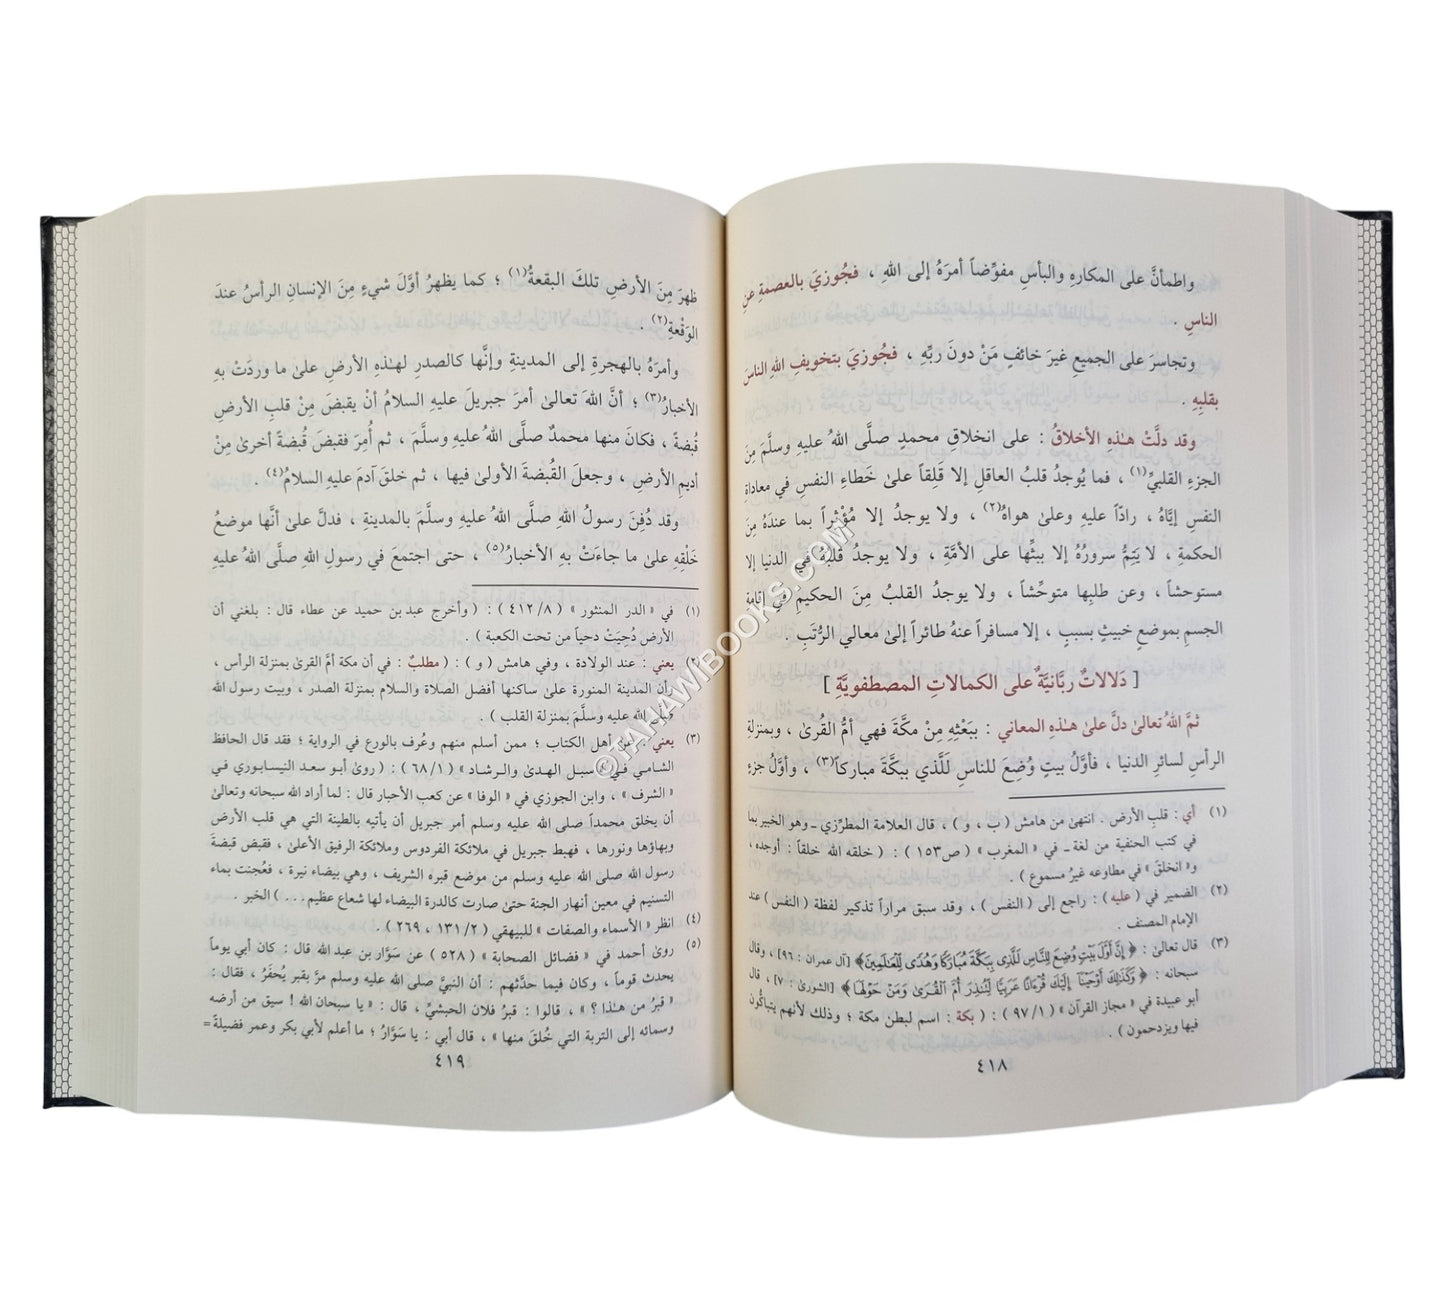 واطمأنَّ على المكارهِ والبأسِ مفوِّضاً أمرَهُ إلى اللهِ ، فجُوزيَ بالعصمةِ عنِ
الناسِ .
وتجاسرَ على الجميعِ غيرَ خائفٍ مَنْ دونَ ربِّهِ ، فجُوزيَ بتخويفِ اللهِ الناسَ
بقلبِهِ .
وقد دلَّتْ هـٰذهِ الأخلاقُ : على انخلاقِ محمدٍ صلَّى اللهُ عليهِ وسلَّمَ مِنَ
الجزءِ القلبيِّ(١) ، فما يُوجدُ قلبُ العاقلِ إلا قَلِقاً علىٰ خَطاءِ النفسِ في معاداة
النفسِ إيَّاهُ ، رادّاً عليهِ وعلىٰ هواهُ(٢) ، ولا يوجدُ إلا مُؤْثِراً بما عندَهُ مِنَ
الحكمةِ ، لا يَتِمُّ سرورُهُ إلا ببثِّها على الأمَّةِ ، ولا يوجدُ قلبُهُ في الدنيا إلا
مستوحشاً ، وعن طلبِها متوحِّشاً ، ولا يوجدُ القلبُ مِنَ الحكيمِ في إثامةِ
الجسمِ بموضعٍ خبيثٍ بسببٍ ، إلا مسافراً عنهُ طائراً إلىٰ معالي الرُّتَبِ .
[ دَلالاتٌ ربَّانيَّةٌ على الكمالاتِ المصطفويَّةِ ]
ثمَّ اللهُ تعالىٰ دلَّ علىٰ هـٰذهِ المعاني : ببَعْثِهِ مِنْ مكَّةَ فهي أمُّ القُرىٰ ، وبمنزلةِ
الرأسِ لسائرِ الدنيا ، فأوَّلُ بيتٍ وُضِعَ للناسِ لَلَّذي ببكَّةَ مباركاً(٣) ، وأوَّلُ جزءٍ
(١) أي : قلبِ الأرض . انتهىٰ من هامش ( ب ، و ) ، قال العلامة المطرِّزي ـ وهو الخبير بما
في كتب الحنفية من لغة ـ في « المغرب » ( ص١٥٣ ) : ( خلقه الله خلقاً : أوجده ،
و« انخلق » في مطاوعه غيرُ مسموع ) .
(٢) الضمير في ( عليه ) : راجع إلى ( النفس ) ، وقد سبق مراراً تذكير لفظة ( النفس ) عند
الإمام المصنف .
(٣) قال تعالىٰ : ﴿ إِنَّ أَوَّلَ بَيْتٍ وُضِعَ لِلنَّاسِ لَلَّذِي بِبَكَّةَ مُبَارَكًا وَهُدًى لِّلْعَالَمِينَ ﴾ [آل عمران : ٩٦] ، وقال
سبحانه : ﴿ وَكَذَٰلِكَ أَوْحَيْنَا إِلَيْكَ قُرْءَانًا عَرَبِيًّا لِّتُنذِرَ أُمَّ الْقُرَىٰ وَمَنْ حَوْلَهَا ﴾ [الشورىٰ : ٧] ، قال
أبو عبيدة في « مجاز القرآن » ( ٩٧/١ ) : ( بكة : اسم لبطن مكة ؛ وذلك لأنهم يتباكُّون
فيها ويزدحمون ) .
٤١٨
ظهرَ مِنَ الأرضِ تلكَ البقعةُ(١) ؛ كما يظهرُ أوَّلَ شيءٍ مِنَ الإنسانِ الرأسُ عندَ
الوَقْعةِ(٢) .
وأمرَهُ بالهجرةِ إلى المدينةِ وإنَّها كالصدرِ لهـٰذهِ الأرضِ علىٰ ما وردَتْ بهِ
الأخبارُ(٣) ؛ أنَّ اللهَ تعالىٰ أمرَ جبريلَ عليهِ السلامُ أنْ يقبضَ مِنْ قلبِ الأرضِ
قُبضةً ، فكانَ منها محمدٌ صلَّى اللهُ عليهِ وسلَّمَ ، ثم أُمِرَ فقبضَ قُبضةً أخرىٰ مِنْ
أديمِ الأرضِ ، وجعلَ القُبضةَ الأولىٰ فيها ، ثم خلقَ آدمَ عليهِ السلامُ(٤) .
وقد دُفِنَ رسولُ اللهِ صلَّى اللهُ عليهِ وسلَّمَ بالمدينةِ ، فدلَّ علىٰ أنَّها موضعُ
خَلْقِهِ علىٰ ما جاءَتْ بهِ الأخبارُ(٥) ، حتى اجتمعَ في رسولِ اللهِ صلَّى اللهُ عليهِ
(١) في « الدر المنثور » ( ٤١٢/٨ ) : ( وأخرج عبد بن حميد عن عطاء قال : بلغني أن
الأرض دُحِيَتْ دحياً من تحت الكعبة ) .
(٢) يعني : عند الولادة ، وفي هامش ( و ) : ( مطلبٌ : في أن مكة أمَّ القرىٰ بمنزلة الرأس ،
وأن المدينة المنورة علىٰ ساكنها أفضل الصلاة والسلام بمنزلة الصدر ، وبيت رسول الله
صلى الله عليه وسلَّمَ بمنزلة القلب ) .
(٣) يعني : من أهل الكتاب ؛ ممن أسلم منهم وعُرف بالورع في الرواية ؛ فقد قال الحافظ
الشامي في « سبل الهدىٰ والرشاد » ( ٦٨/١ ) : ( روىٰ أبو سعد النيسابوري في
« الشرف » ، وابن الجوزي في « الوفا » عن كعب الأحبار قال : لما أراد الله سبحانه وتعالىٰ
أن يخلق محمداً صلى الله عليه وسلم أمر جبريل أن يأتيه بالطينة التي هي قلب الأرض
وبهاؤها ونورها ، فهبط جبريل في ملائكة الفردوس وملائكة الرفيق الأعلىٰ ، فقبض قبضة
رسول الله صلى الله عليه وسلم من موضع قبره الشريف ، وهي بيضاء نيرة ، فعُجنت بماء
التسنيم في معين أنهار الجنة حتىٰ صارت كالدرة البيضاء لها شعاع عظيم . . . ) الخبر .
(٤) انظر « الأسماء والصفات » للبيهقي ( ١٣١/٢ ، ٢٦٩ ) .
(٥) روىٰ أحمد في « فضائل الصحابة » ( ٥٢٨ ) عن سَوَّار بن عبد الله قال : كان أبي يوماً
يحدث قوماً ، وكان فيما حدَّثهم : أن النبيَّ صلى الله عليه وسلم مرَّ بقبر يُحفَرُ ، فقال :
« قبرُ من هـٰذا ؟ » ، قالوا : قبرُ فلان الحبشيِّ ، قال : « يا سبحان الله ! سيق من أرضه
وسمائه إلى التربة التي خُلقَ منها » ، قال أبي : يا سَوَّارُ ؛ ما أعلم لأبي بكر وعمر فضيلةً =
٤١٩
©TAHAWIBOOKS.COM